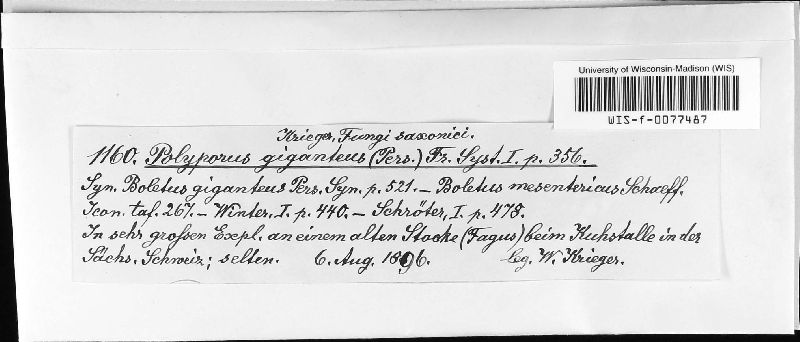 University of Wisconsin-Madison (WIS)
WIS-f-0077487
Krieger, Fungi saxonici.
1160. Polyporus giganteus (Pers.) Fr. Syst. I. p. 356.
Syn. Boletus giganteus Pers. Syn. p. 521. – Boletus mesentericus Schaeff.
Icon. taf. 267. – Winter, I. p. 440. – Schröter, I. p. 478.
In sehr großen Expl. an einem alten Stocke (Fagus) beim Kuhstalle in der
Sächs. Schweiz; selten. 6. Aug. 1896. leg. W. Krieger.